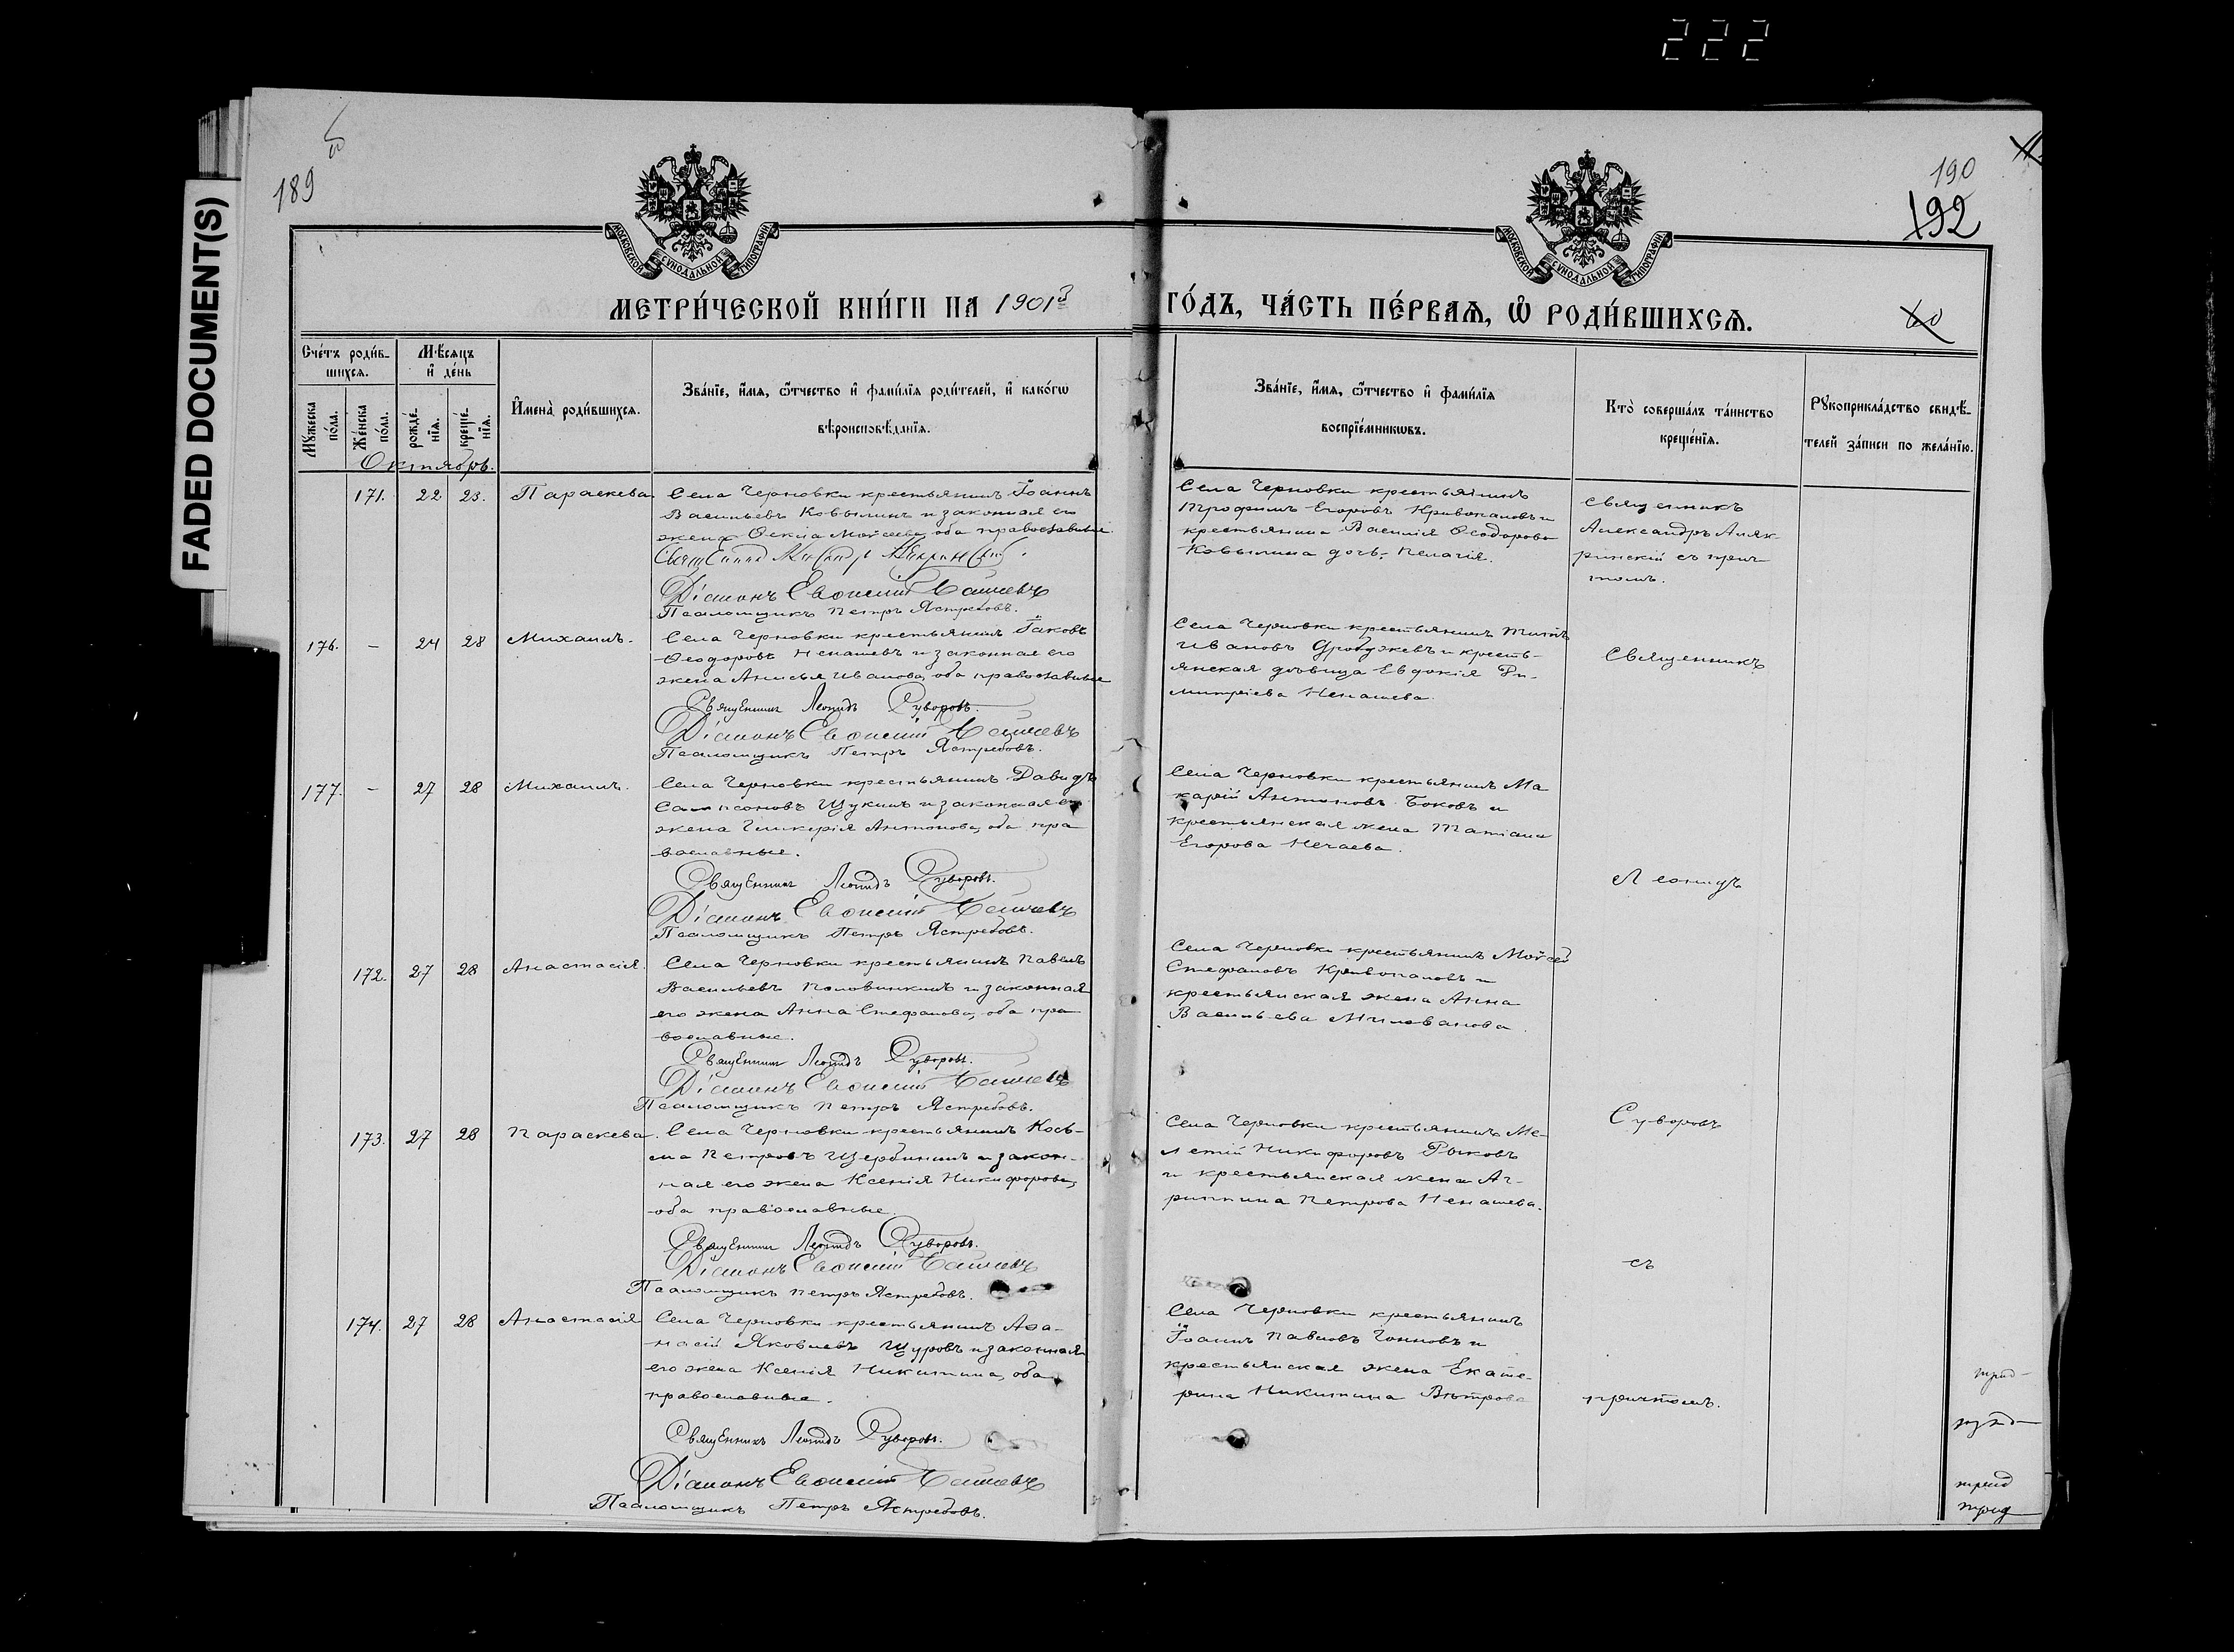 222
FADED DOCUMENT(S)
189
190
192
МОСКОВСКОЙ СѴНОДАЛЬНОЙ ТИПОГРАФІИ
МОСКОВСКОЙ СѴНОДАЛЬНОЙ ТИПОГРАФІИ
МЕТРИ́ЧЕСКОЙ КНИ́ГИ НА 1901й ГО́ДЪ, ЧА́СТЬ ПЕ́РВАѦ, Ѽ РОДИ́ВШИХСѦ.
Сче́тъ роди́в-
шихсѧ.
Мѣ́сѧцъ
и҆ де́нь
Мꙋ́жеска
по́ла.
Же́нска
по́ла.
рожде́-
нїѧ.
креще́-
нїѧ.
И҆мена̀ роди́вшихсѧ.
Зва́нїе, и҆́мѧ, ѻ҆́тчество и҆ фами́лїѧ роди́телей, и҆ како́гѡ
вѣроисповѣ́данїѧ.
Зва́нїе, и҆́мѧ, ѻ҆́тчество и҆ фами́лїѧ
воспрїе́мникѡвъ.
Кто̀ соверша́лъ та́инство
креще́нїѧ.
Рꙋкоприкла́дство свидѣ́-
телей за́писи по жела́нїю.
Октябрь.
171. 22 23. Параскева.
Села Черновки крестьянинъ Іоаннъ
Васильевъ Ковылинъ и законная его
жена Ѳекла Моисеева, оба православные.
Діаконъ Евѳимій
Псаломщикъ Петръ Ястребовъ.
Села Черновки крестьянинъ
Трофимъ Егоровъ Кривопаловъ и
крестьянина Василія Ѳеодорова
Ковылина дочь, Пелагія.
Священникъ
Александръ Аляк-
ринскій съ прич-
томъ.
176. - 24 28 Михаилъ.
Села Черновки крестьянинъ Іаковъ
Ѳеодоровъ Ненашевъ и законная его
жена Анисья Иванова, оба православные
Священникъ Леонидъ Суворовъ.
Діаконъ Евѳимій
Псаломщикъ Петръ Ястребовъ.
Села Черновки крестьянинъ Титъ
Ивановъ и кресть-
янская дѣвица Евдокія Ди-
митріева Ненашева.
Священникъ
177. - 27 28 Михаилъ.
Села Черновки крестьянинъ Давидъ
Сампсоновъ Щукинъ и законная его
жена Гликерія Антонова, оба пра
вославные.
Священникъ Леонидъ Суворовъ.
Діаконъ Евѳимій
Псаломщикъ Петръ Ястребовъ.
Села Черновки крестьянинъ Ма
карій Антоновъ Боковъ и
крестьянская жена Татіана
Егорова Нечаева.
Леонидъ
172. 27 28 Анастасія.
Села Черновки крестьянинъ Павелъ
Васильевъ Половинкинъ и законная
его жена Анна Стефанова, оба пра
вославные.
Священникъ Леонидъ Суворовъ.
Діаконъ Евѳимій
Псаломщикъ Петръ Ястребовъ.
Села Черновки крестьянинъ Мойсей
Стефановъ Кривопаловъ и
крестьянская жена Анна
Васильева Милованова.
Суворовъ
173. 27 28 Параскева.
Села Черновки крестьянинъ Кось-
ма Петровъ Щербининъ и закон-
ная его жена Ксенія Никифорова,
оба православные.
Священникъ Леонидъ Суворовъ.
Діаконъ Евѳимій
Псаломщикъ Петръ Ястребовъ.
Села Черновки крестьянинъ Ме-
летій Никифоровъ Рыковъ
и крестьянская жена Аг-
риппина Петрова Ненашева.
съ
174. 27 28 Анастасія
Села Черновки крестьянинъ Аѳа-
насій Яковлевъ Щуровъ и законная
его жена Ксенія Никитина, оба
православные.
Священникъ Леонидъ Суворовъ.
Діаконъ Евѳимій
Псаломщикъ Петръ Ястребовъ.
Села Черновки крестьянинъ
Іоаннъ Павловъ и
крестьянская жена Екате-
рина Никитина Вѣтрова
причтомъ.